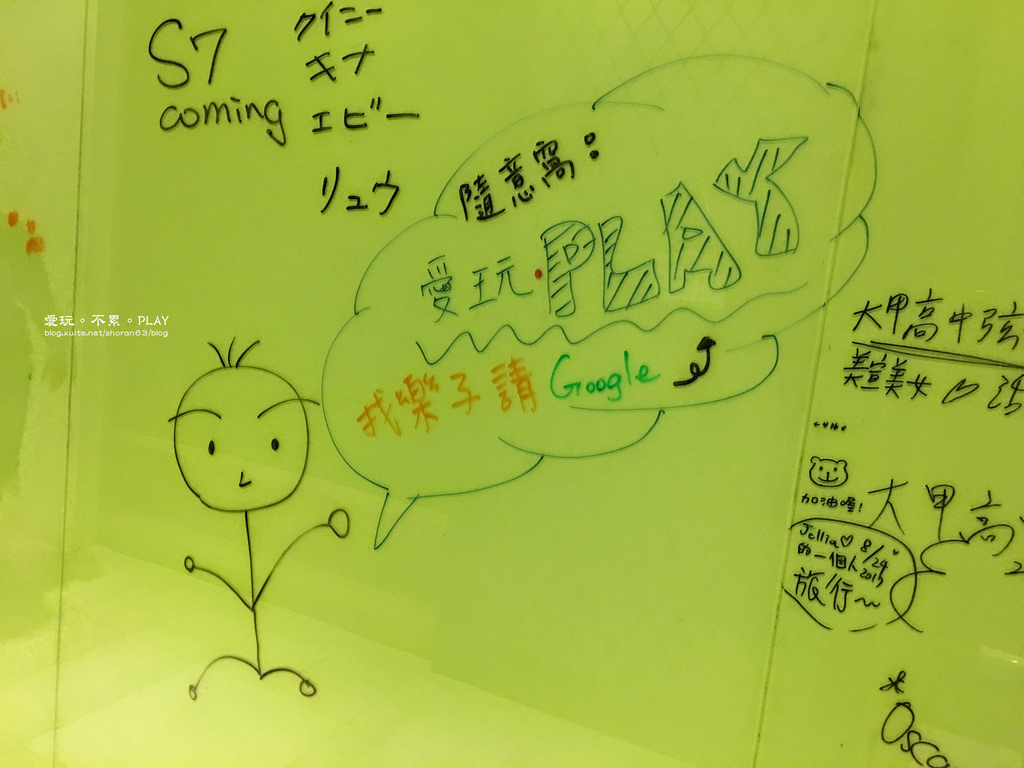 S7
coming
クイニー
キナ
エビー
リュウ
隨意窩:
愛玩·PLAY
找樂子請 Google
愛玩。不累。PLAY
blog.xuite.net/shoran63/blog
大甲高中弦
美宣美女
加油喔!
大甲高
Jellia♡ 8/24
的一個人
旅行~
Osca